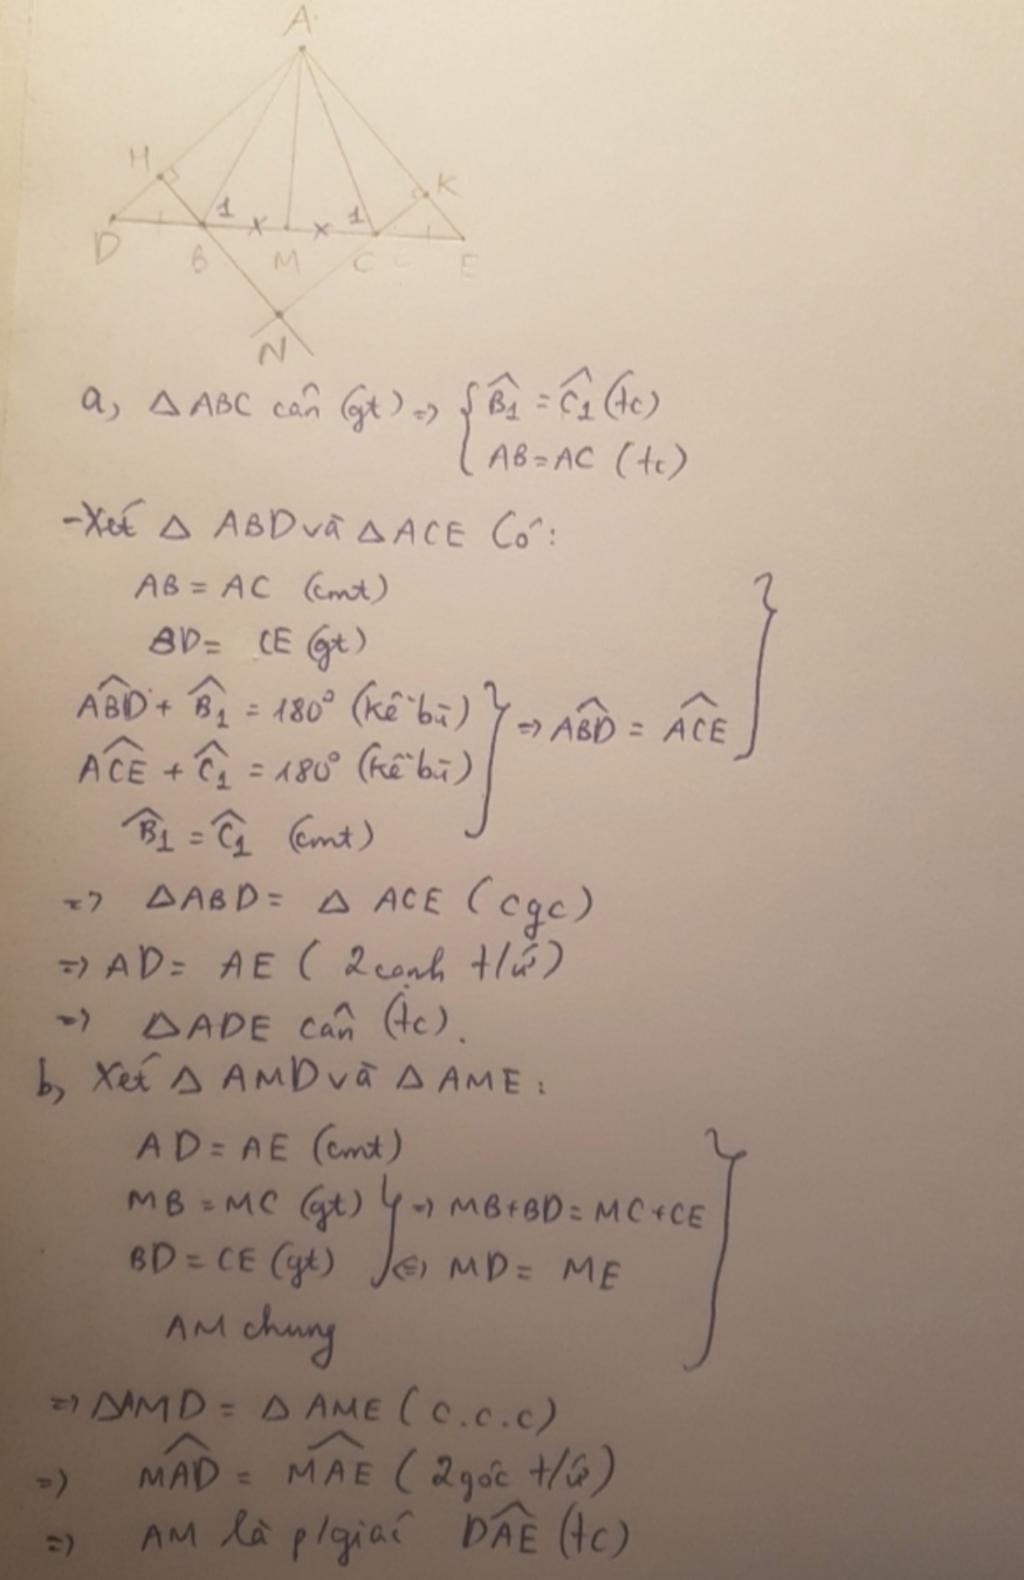 A
H
K
1
1
D
B
M
C
E
N
a, △ ABC cân (gt) => { B̂1 = Ĉ1 (tc)
AB = AC (tc)
- Xét △ ABD và △ ACE Có:
AB = AC (cmt)
BD = CE (gt)
ABD + B̂1 = 180° (kề bù)
=> ABD = ACE
ACE + Ĉ1 = 180° (kề bù)
B̂1 = Ĉ1 (cmt)
=> △ABD = △ ACE (cgc)
=> AD = AE ( 2 cạnh t/ứ)
=> △ADE cân (tc).
b, Xét △ AMD và △ AME :
AD = AE (cmt)
MB = MC (gt) => MB+BD = MC+CE
BD = CE (gt) <=> MD = ME
AM chung
=> △AMD = △ AME ( c.c.c)
=> MAD = MAE ( 2 góc t/ứ)
=> AM là p/giai DAE (tc)